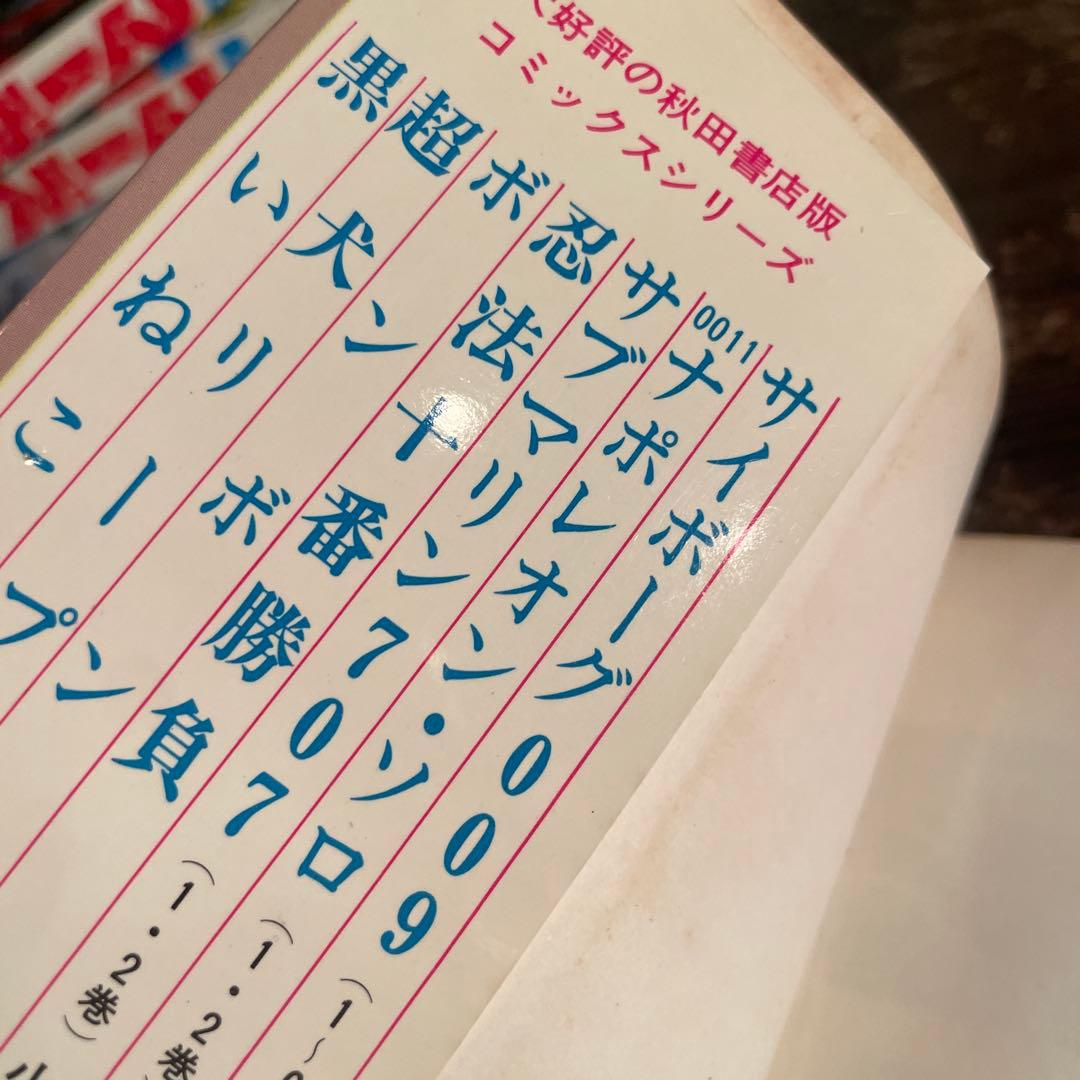 好評の秋田書店版
コミックスシリーズ
サイボーグ009(1~
0011ナポレオン・ソロ(1・2巻
サブマリン707(1・2巻)
忍法十番勝負
ボンボン
超犬リープ
黒いねこ